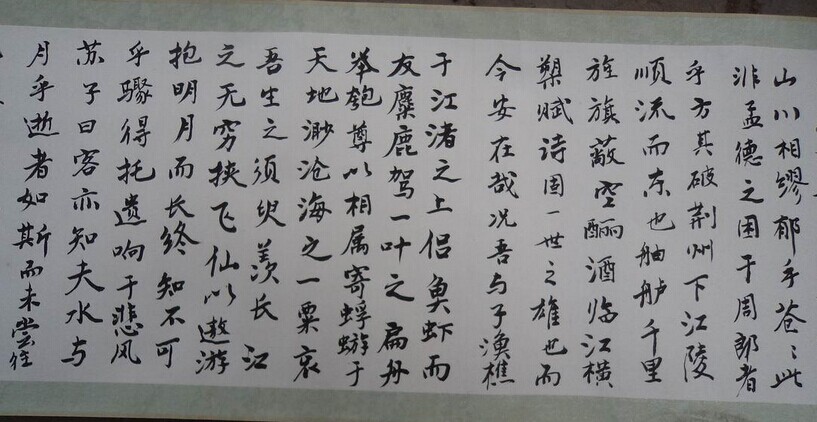 山川相缪郁乎苍〻此
非孟德之困于周郎者
乎方其破荆州下江陵
顺流而东也舳舻千里
旌旗蔽空酾酒临江横
槊赋诗固一世之雄也而
今安在哉况吾与子渔樵
于江渚之上侣鱼虾而
友麋鹿驾一叶之扁舟
举匏尊以相属寄蜉蝣于
天地渺沧海之一粟哀
吾生之须臾羡长江
之无穷挟飞仙以遨游
抱明月而长终知不可
乎骤得托遗响于悲风
苏子曰客亦知夫水与
月乎逝者如斯而未尝往